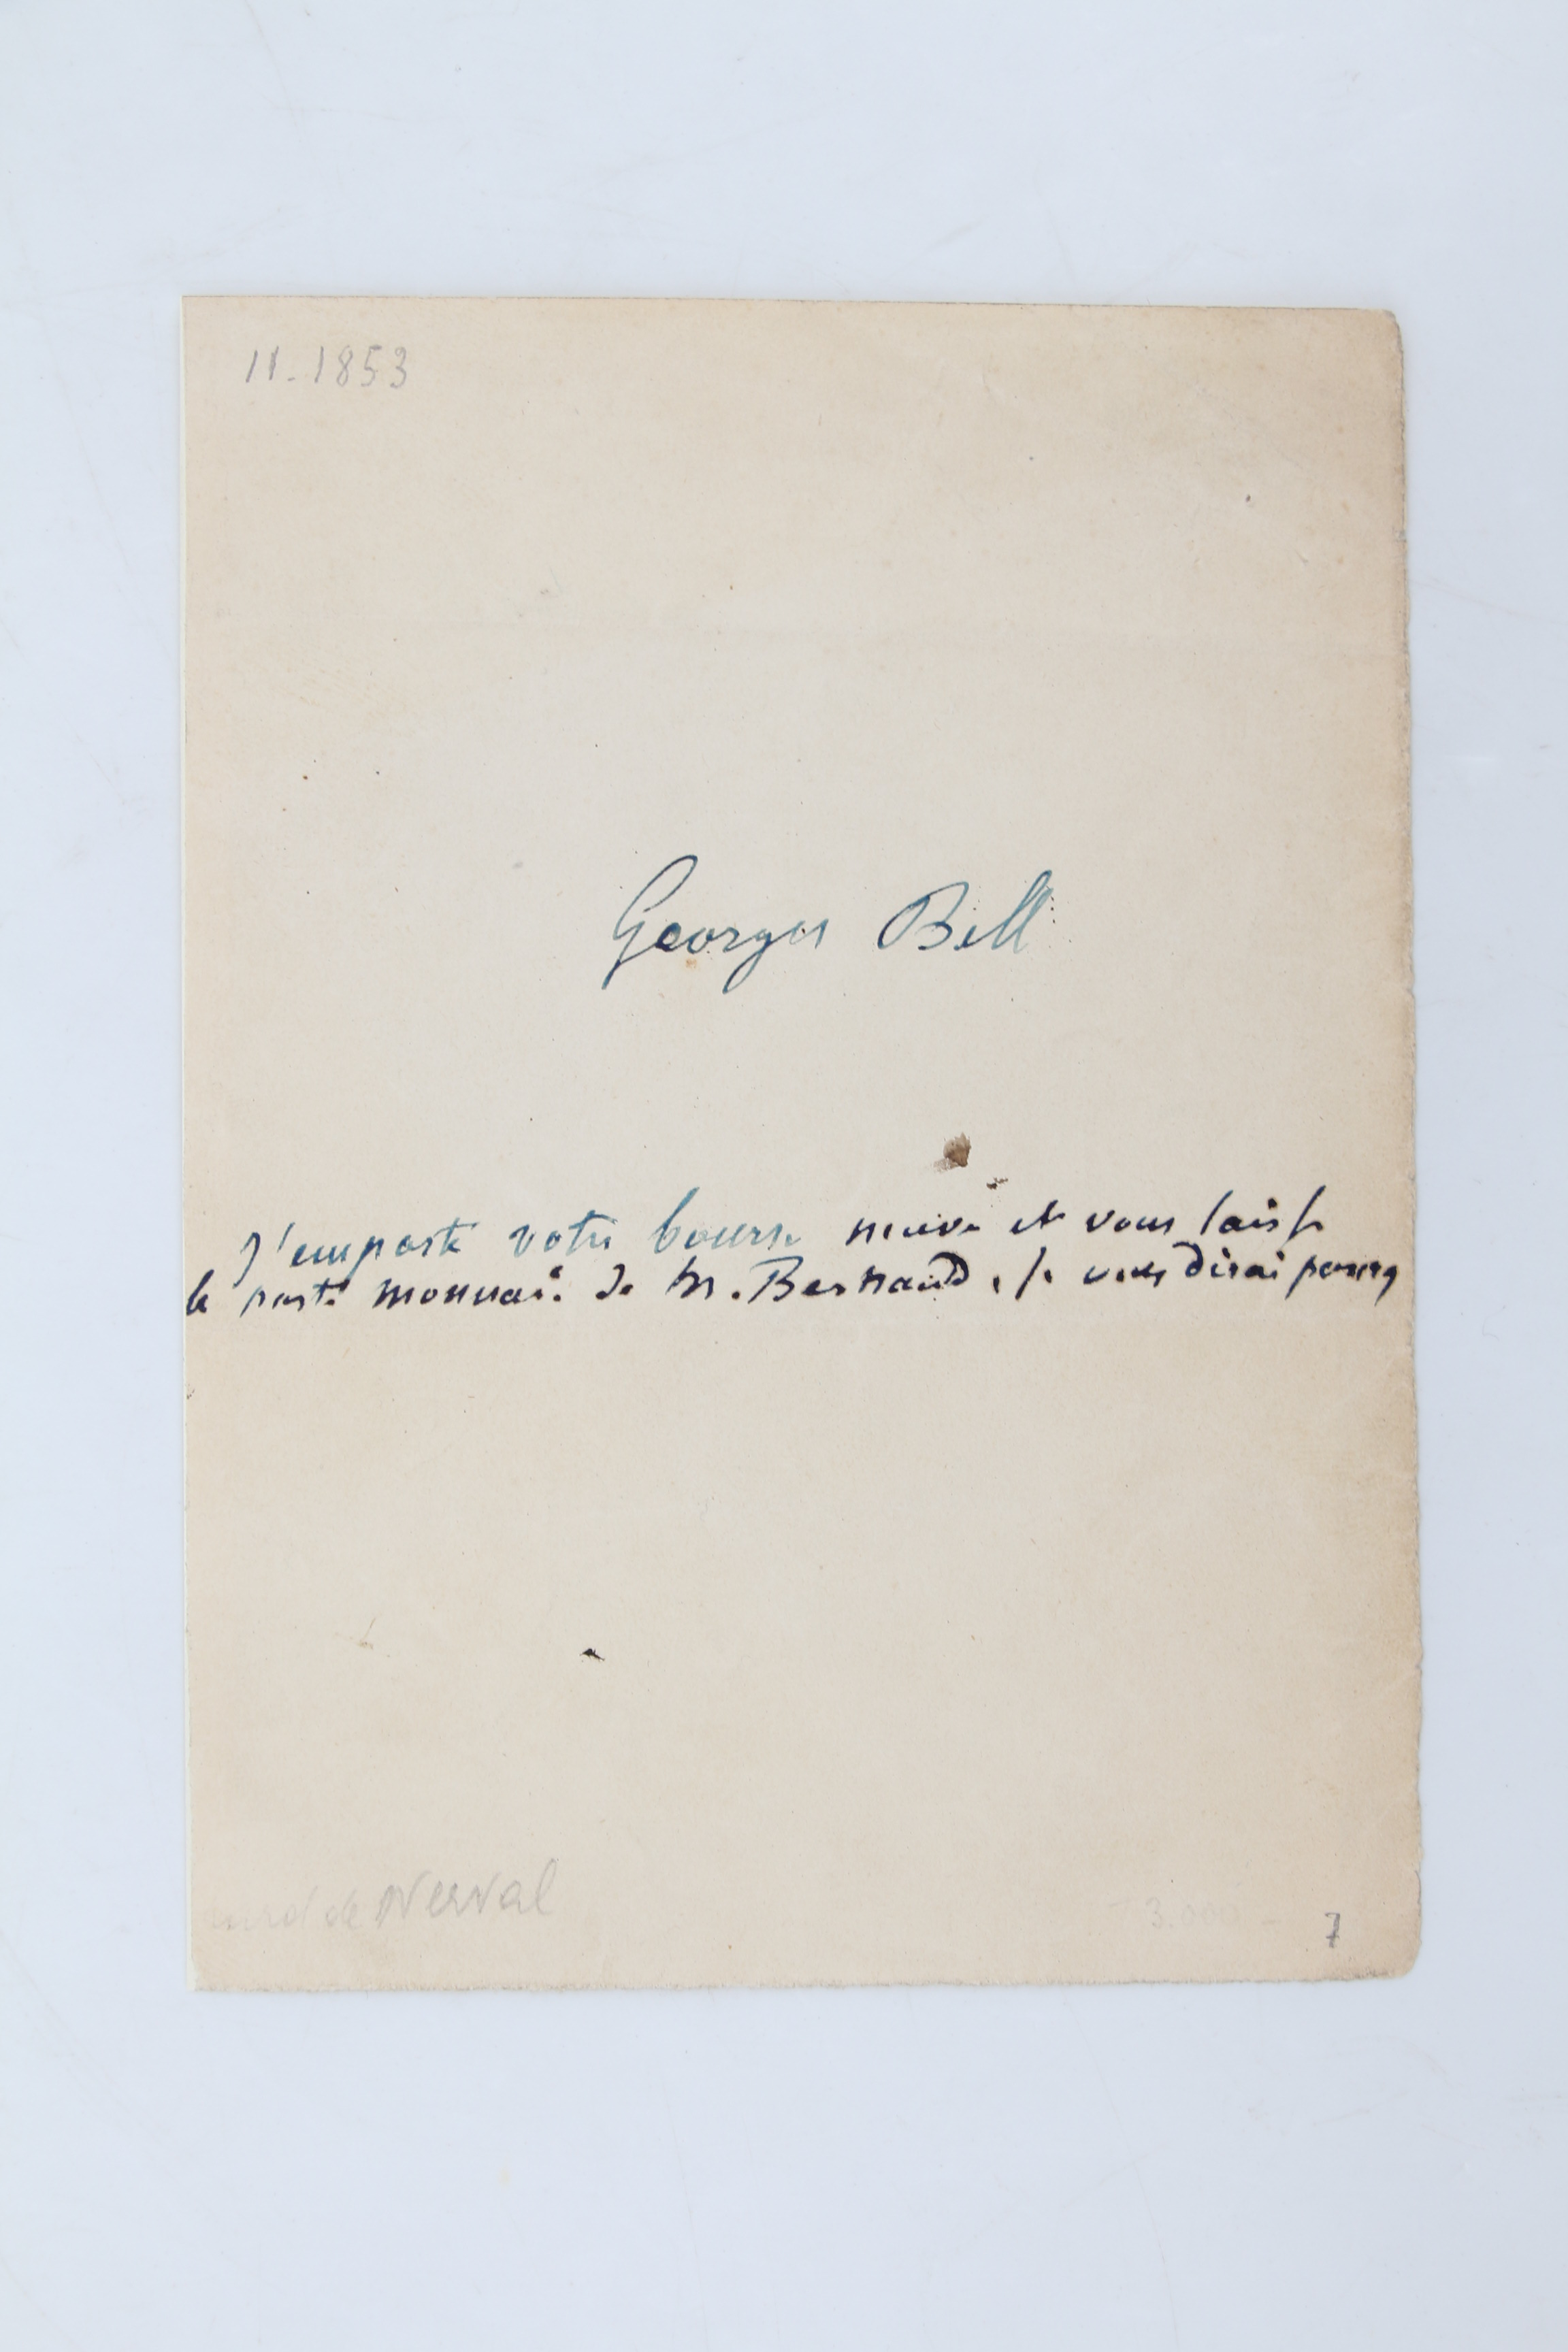 11-1853
Georges Bell
J'emporte votre bourse neuve et vous laisse
le porte monnaie de M. Bernard, Je vous dirai pourq
de Nerval
3.000 -
7